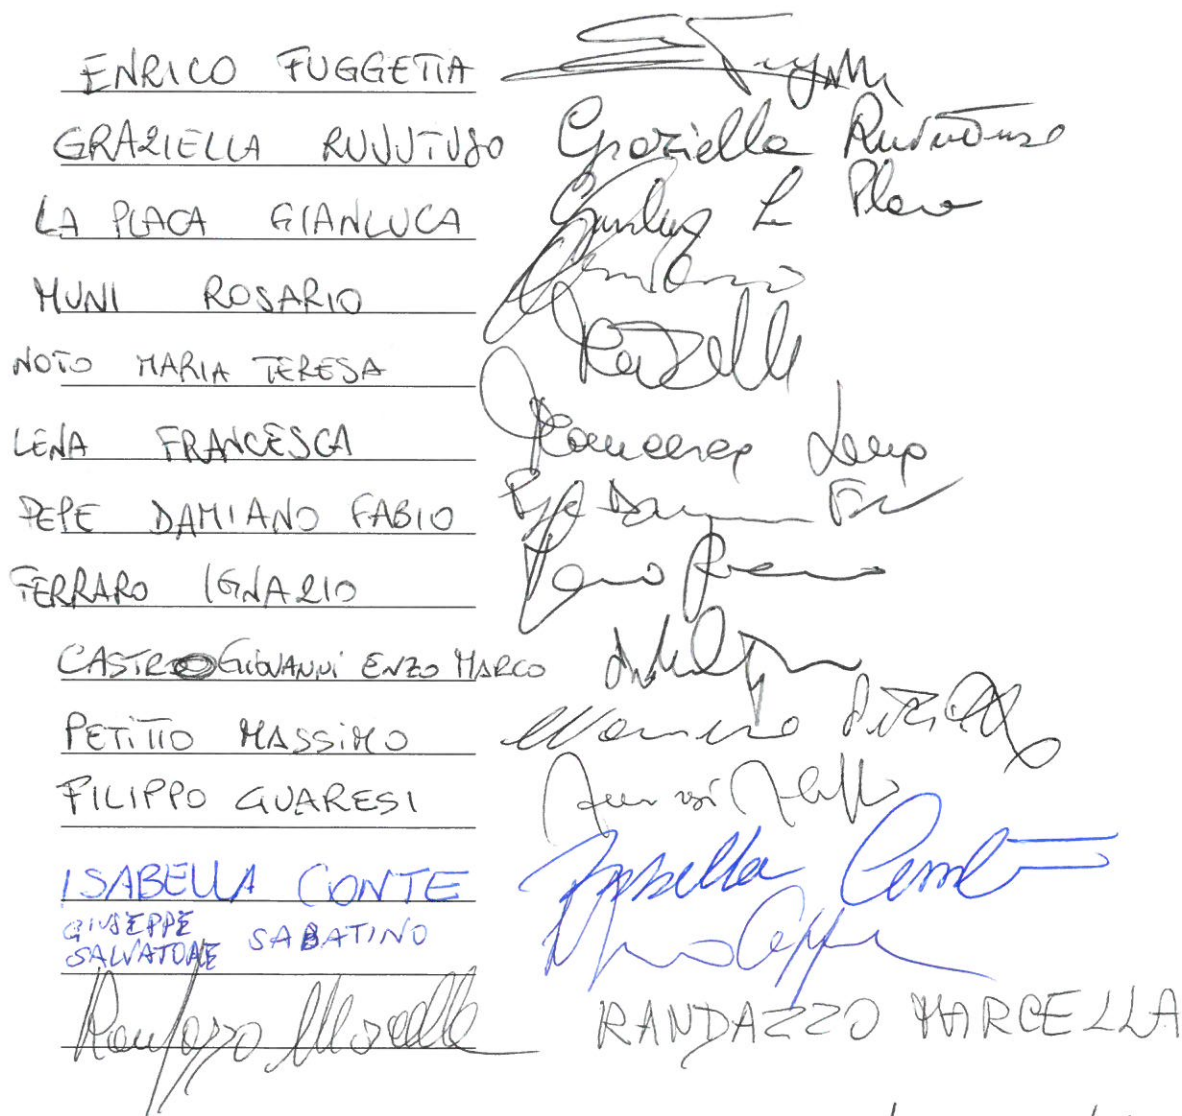 ENRICO FUGGETTA
GRAZIELLA RUVUTUSO Graziella Ruvutuso
LA PLACA GIANLUCA Gianluca La Placa
MUNI ROSARIO
NOTO MARIA TERESA
LENA FRANCESCA Francesca Lena
PEPE DAMIANO FABIO
FERRARO IGNAZIO
CASTROGIOVANNI ENZO MARCO
PETITTO MASSIMO Massimo Petitto
FILIPPO GUARESI
ISABELLA CONTE Isabella Conte
GIUSEPPE
SALVATORE SABATINO
Randazzo Marcella RANDAZZO MARCELLA